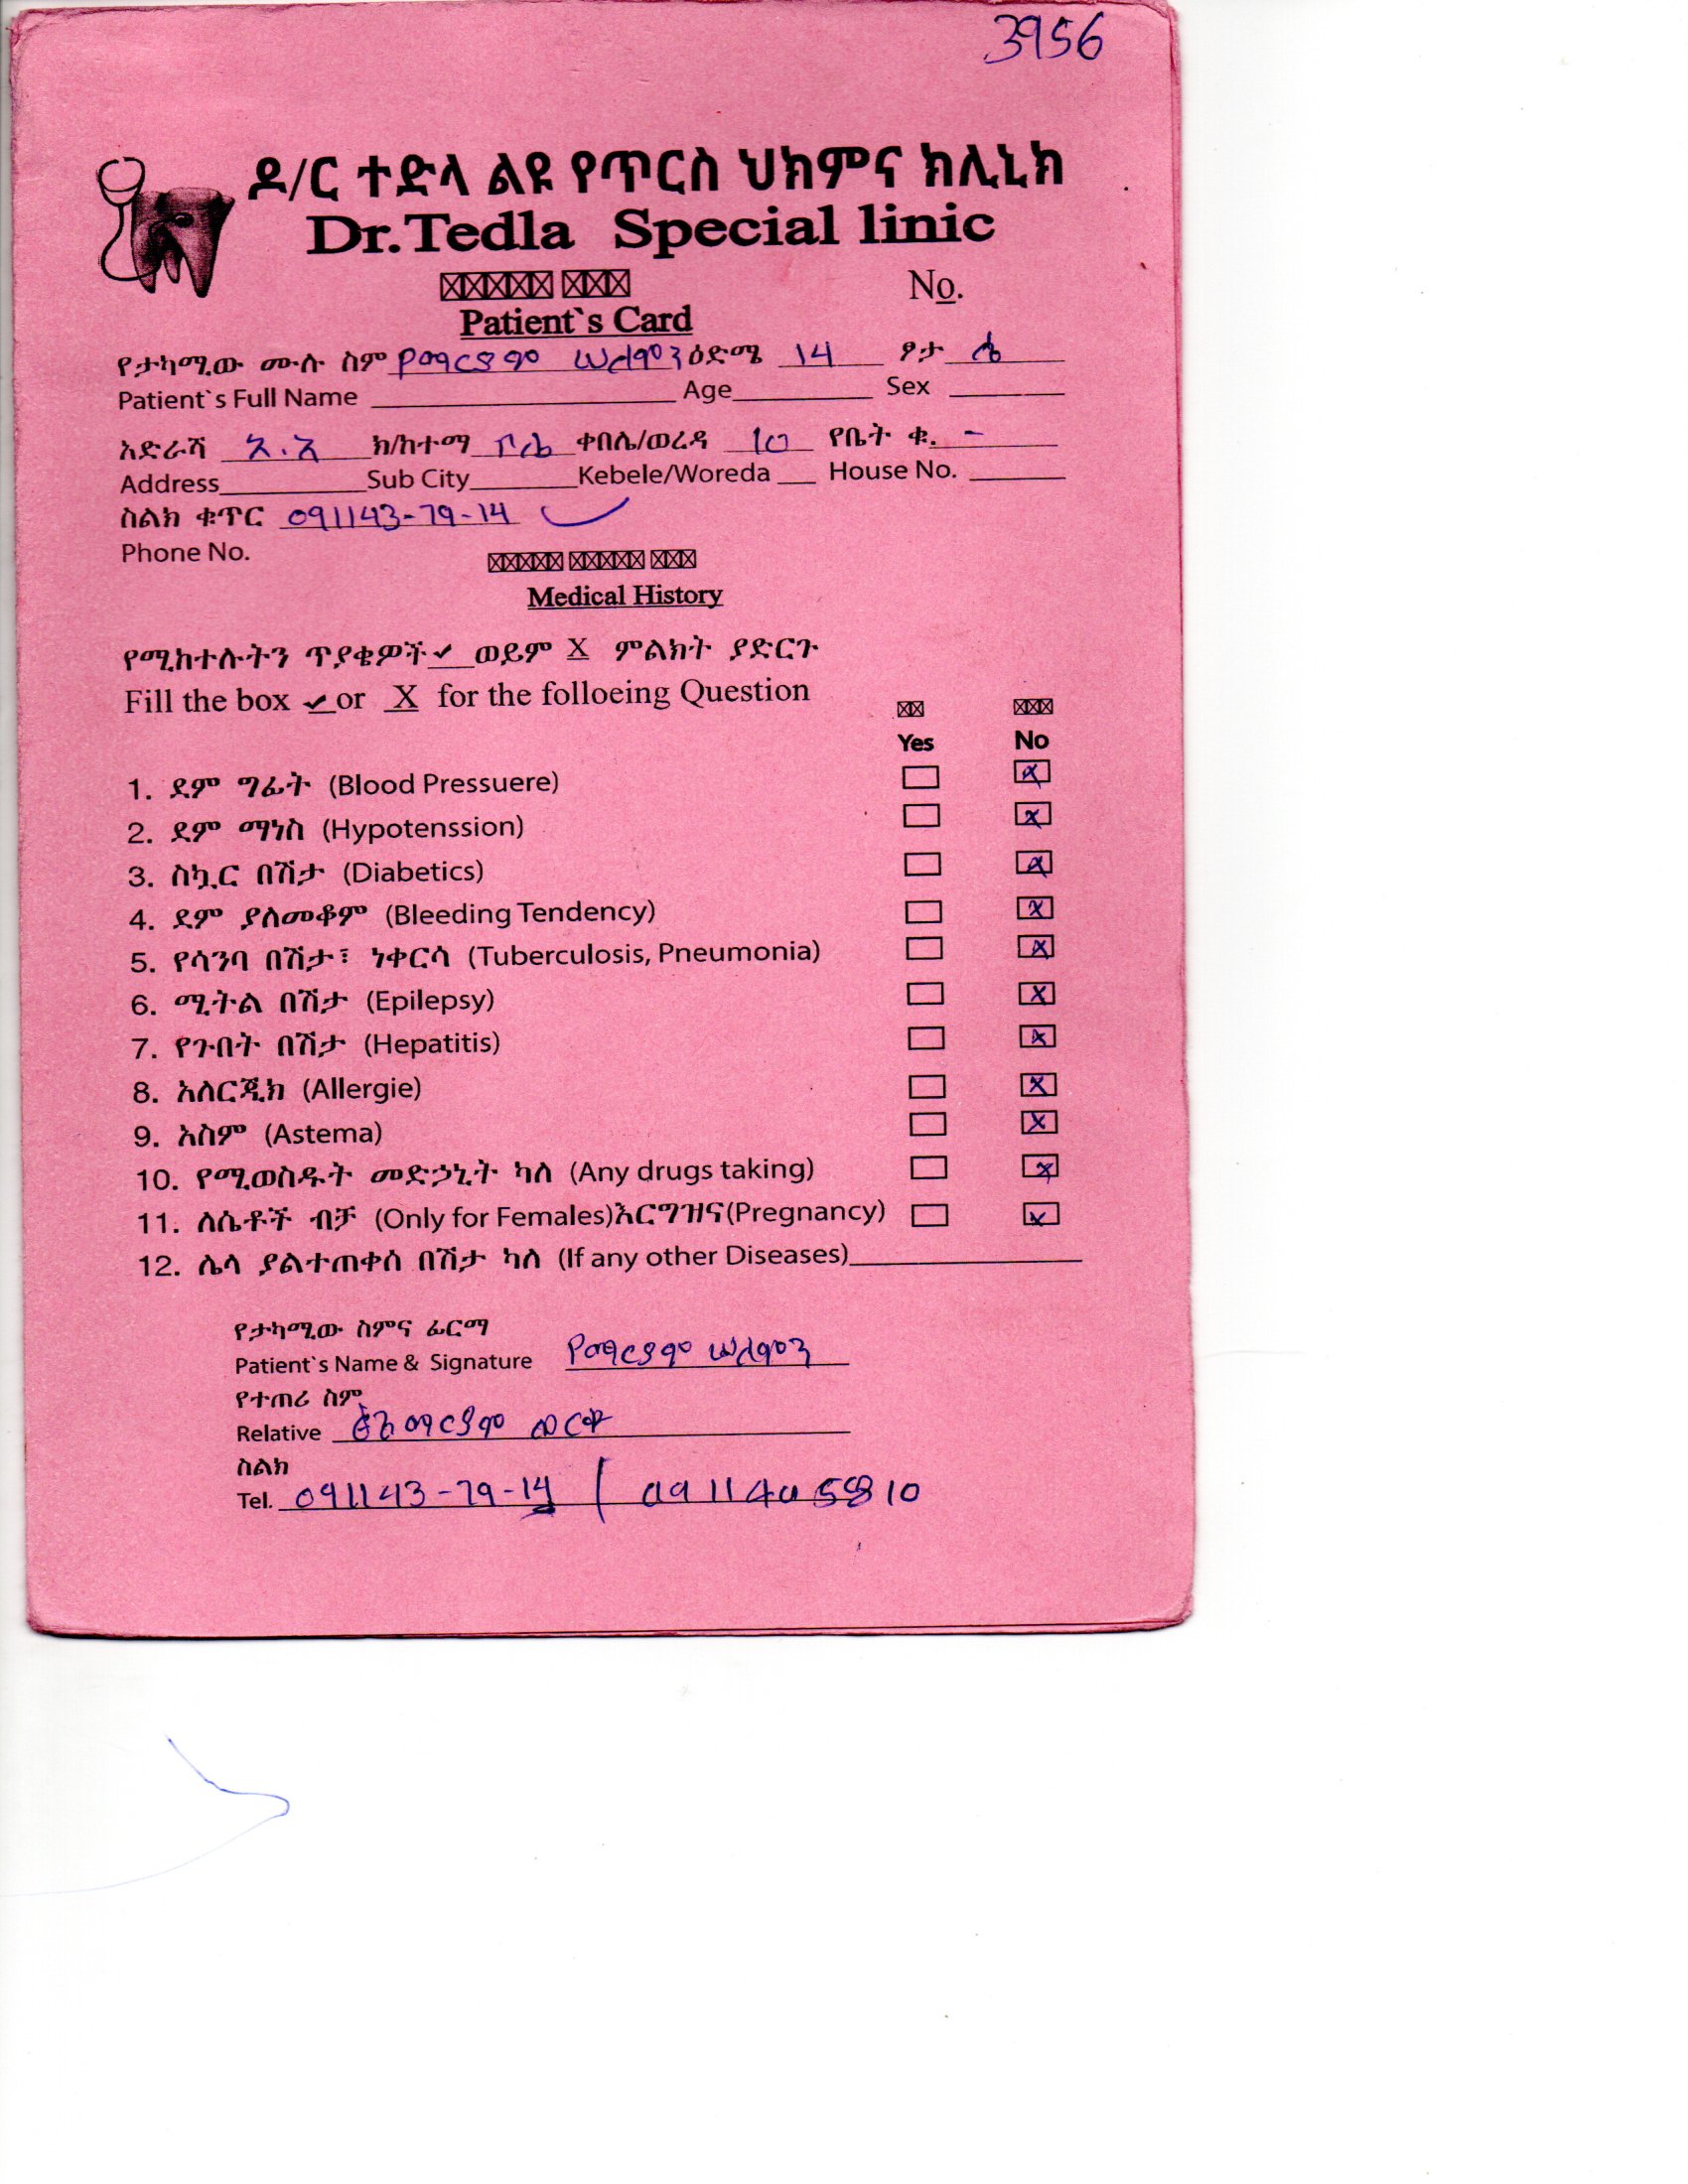 3956
ዶ/ር ተድላ ልዩ የጥርስ ህክምና ክሊኒክ
Dr.Tedla Special linic
No.
Patient`s Card
የታካሚው ሙሉ ስም የማርያም ዕድሜ 14 ፆታ ሴ
Patient`s Full Name Age Sex
አድራሻ አ.አ ክ/ከተማ ቦሌ ቀበሌ/ወረዳ 10 የቤት ቁ. -
Address Sub City Kebele/Woreda House No.
ስልክ ቁጥር 091143-79-14
Phone No.
Medical History
የሚከተሉትን ጥያቄዎች ✓ ወይም X ምልክት ያድርጉ
Fill the box ✓ or X for the folloeing Question
Yes No
1. ደም ግፊት (Blood Pressuere) X
2. ደም ማነስ (Hypotenssion) X
3. ስኳር በሽታ (Diabetics) X
4. ደም ያለመቆም (Bleeding Tendency) X
5. የሳንባ በሽታ፣ ነቀርሳ (Tuberculosis, Pneumonia) X
6. ሚትል በሽታ (Epilepsy) X
7. የጉበት በሽታ (Hepatitis) X
8. አለርጂክ (Allergie) X
9. አስም (Astema) X
10. የሚወስዱት መድኃኒት ካለ (Any drugs taking) X
11. ለሴቶች ብቻ (Only for Females)እርግዝና(Pregnancy) X
12. ሌላ ያልተጠቀሰ በሽታ ካለ (If any other Diseases)
የታካሚው ስምና ፊርማ
Patient`s Name & Signature የማርያም
የተጠሪ ስም
Relative ፅጌማርያም ወርቁ
ስልክ
Tel. 091143-79-14 /